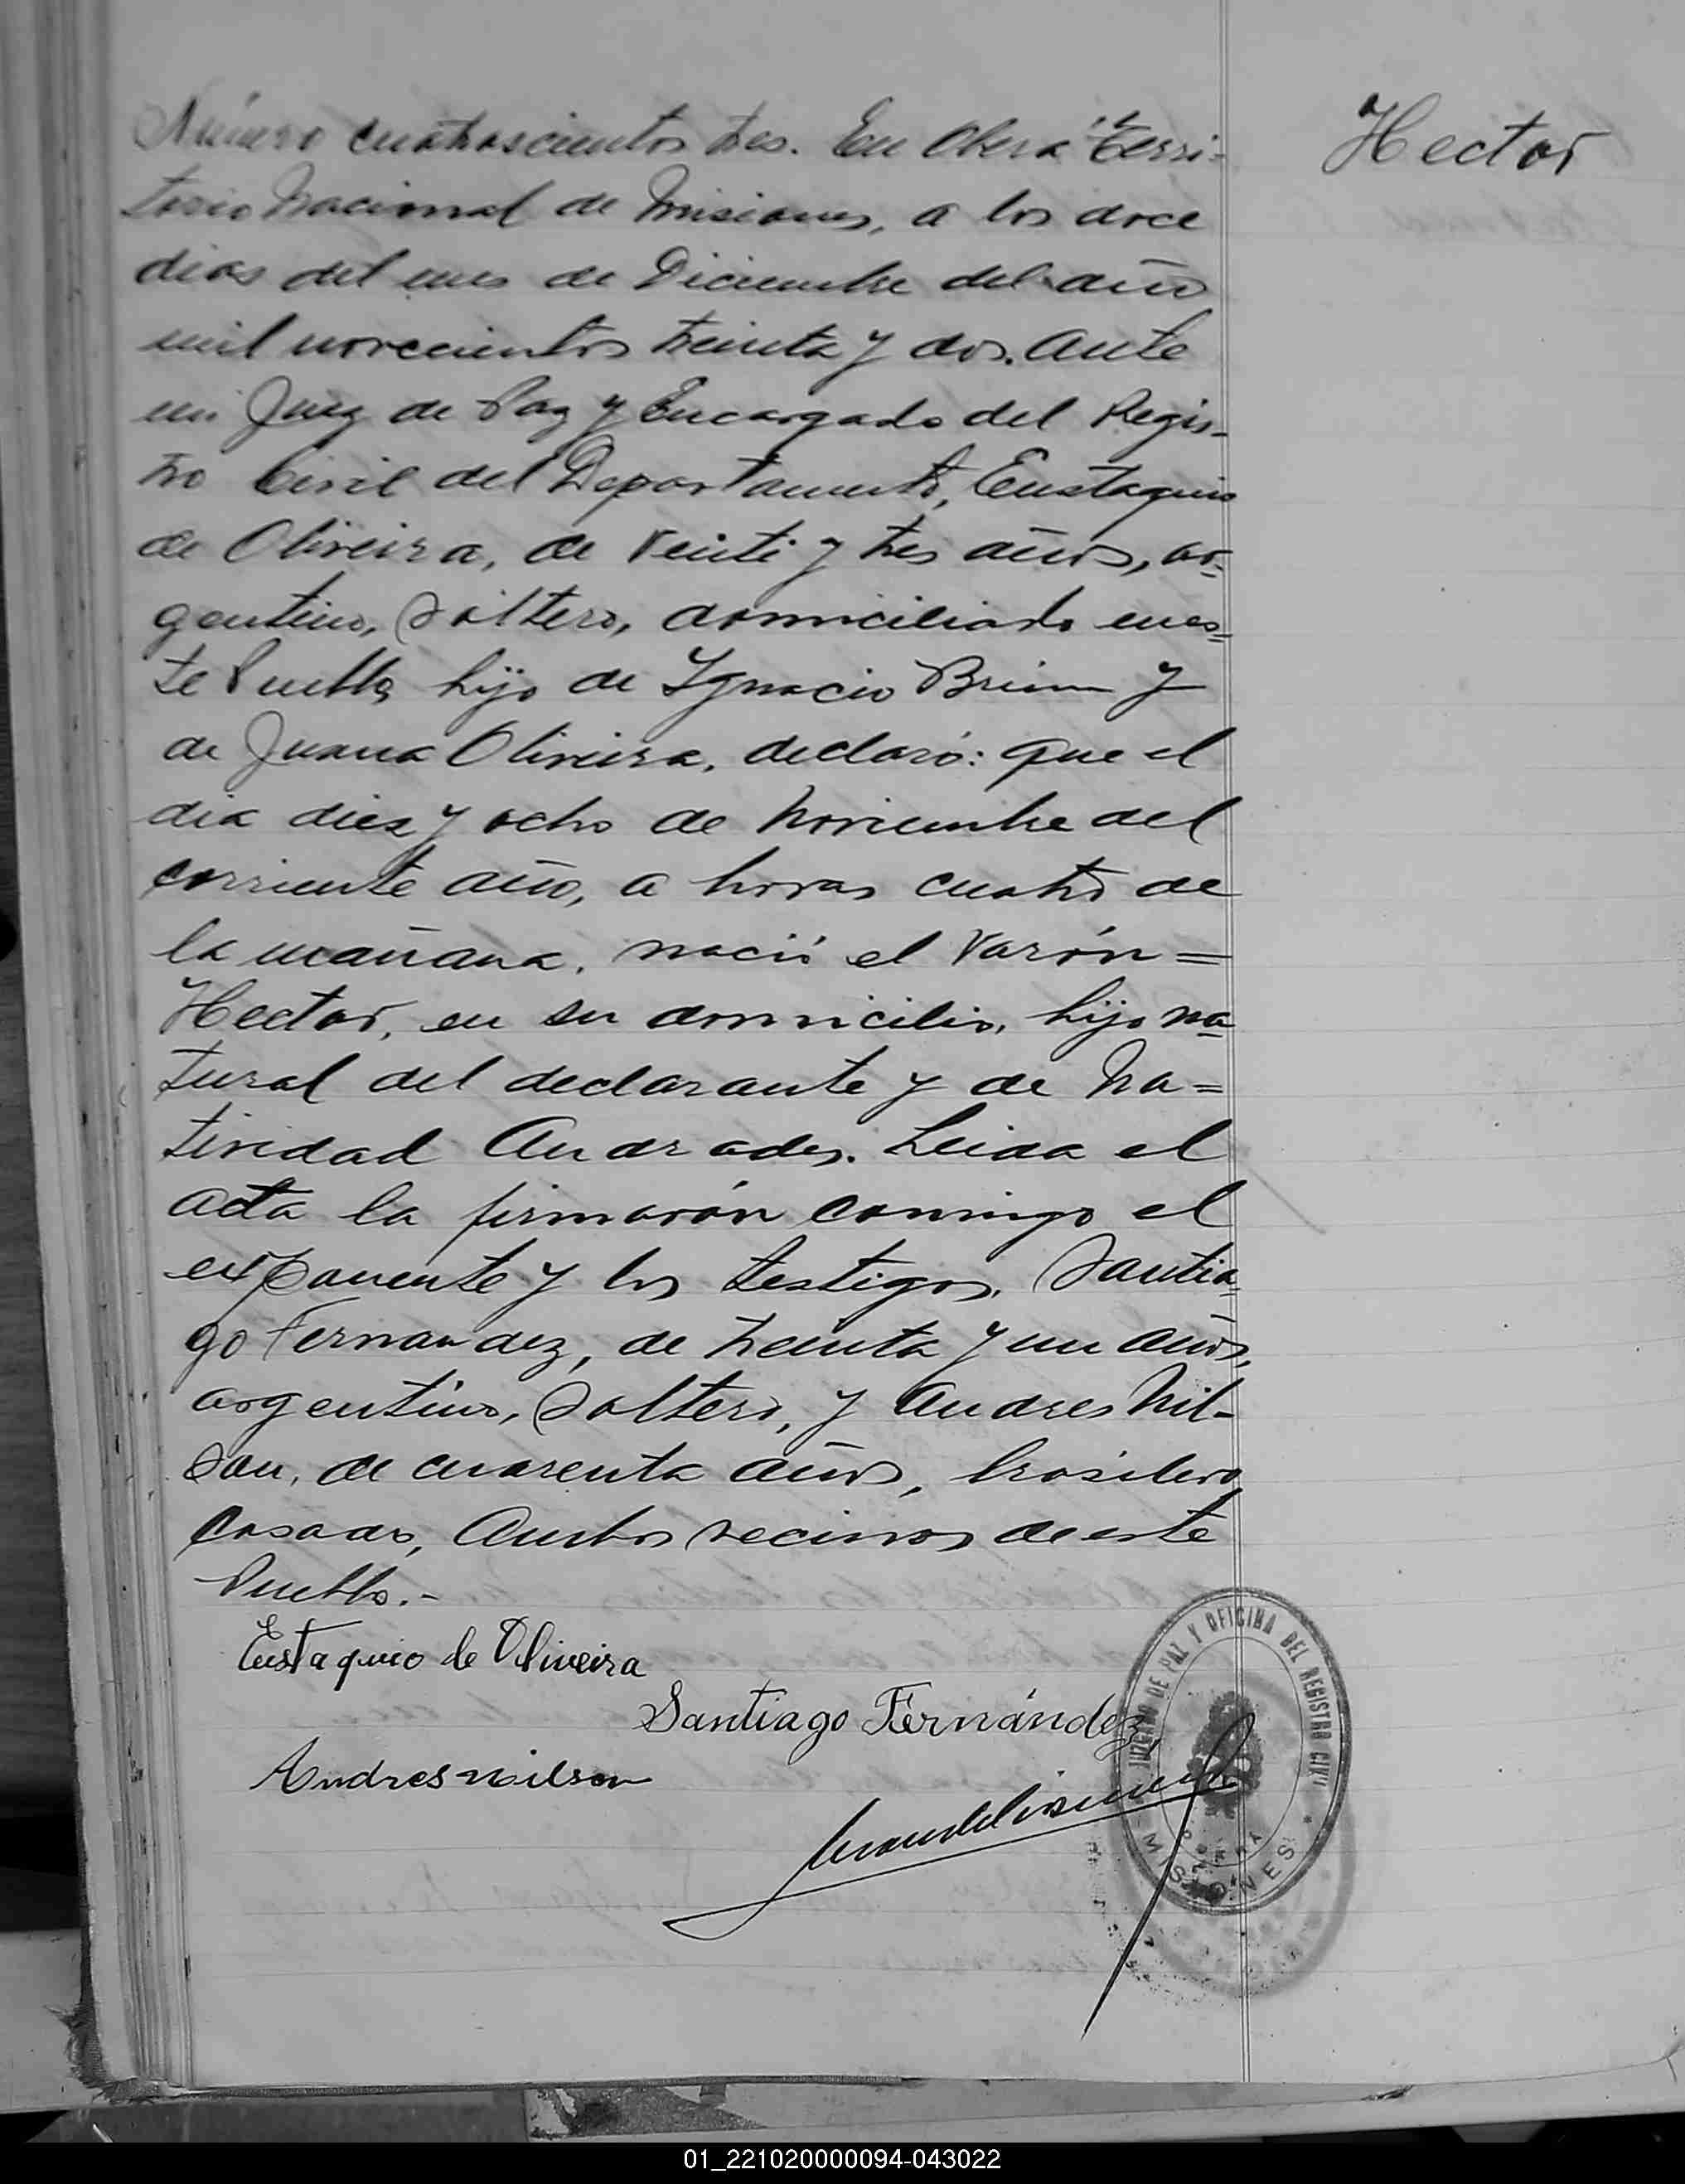 Número cuatroscientos tres. En Oberá Terri-
torio Nacional de Misiones, a los doce
dias del mes de Diciembre del año
mil novecientos treinta y dos. Ante
mi Juez de Paz y Encargado del Regis-
tro Civil del Departamento, Eustaquio
de Oliveira, de veinti y tres años, ar-
gentino, Soltero, domiciliado en es-
te Pueblo, hijo de Ygnacio Brum y
de Juana Oliveira, declaró: que el
dia diez y ocho de Noviembre del
corriente año, a horas cuatro de
la mañana, nació el varón=
Hector, en su domicilio, hijo na-
tural del declarante y de Na=
tividad Andrades. Leida el
acta la firmarón conmigo el
exponente y los testigos, Santia-
go Fernandez, de treinta y un años,
argentino, Soltero, y Andres Nil-
son, de cuarenta años, brasilero,
casado, Ambos vecinos de este
Pueblo.-
Hector
Eustaquio de Oliveira
Santiago Fernández
Andres nilson
JUZGADO DE PAZ Y OFICINA DEL REGISTRO CIVIL
MISIONES
01_221020000094-043022